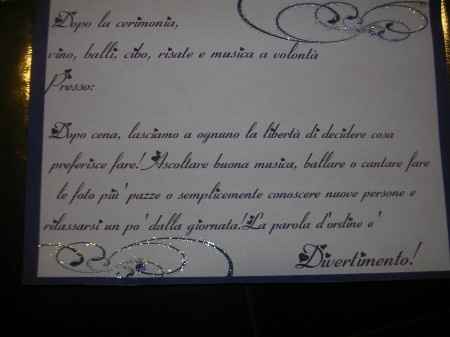 Dopo la cerimonia,
vino, balli, cibo, risate e musica a volontà
Presso:
Dopo cena, lasciamo a ognuno la libertà di decidere cosa
preferisce fare! Ascoltare buona musica, ballare o cantare fare
le foto piu' pazze o semplicemente conoscere nuove persone e
rilassarsi un po' dalla giornata! La parola d'ordine e'
Divertimento!